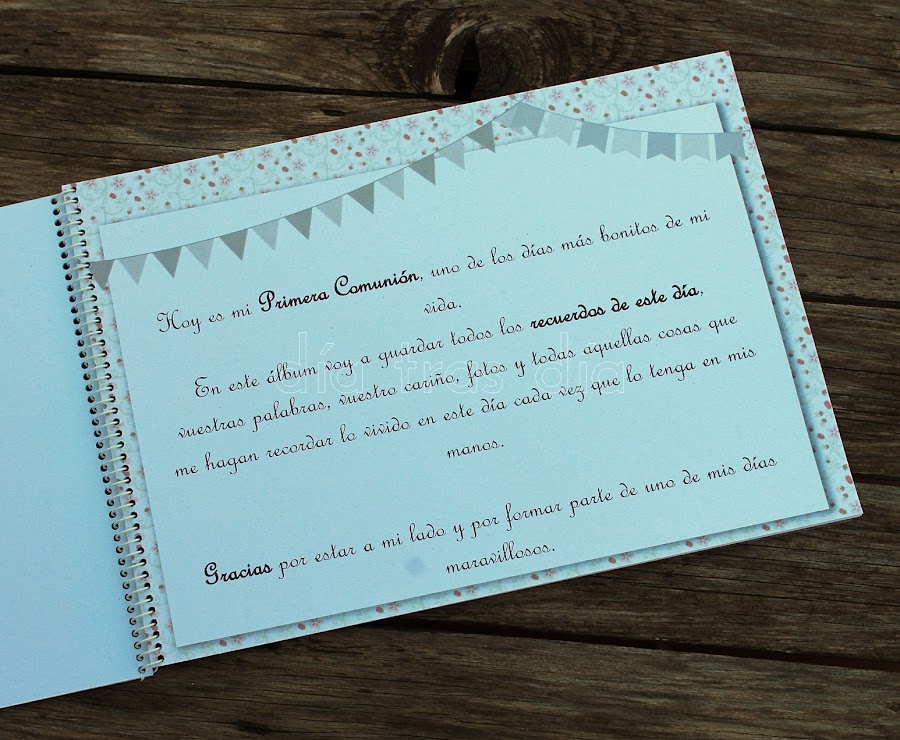 Hoy es mi Primera Comunión, uno de los días más bonitos de mi
vida.
En este álbum voy a guardar todos los recuerdos de este día,
vuestras palabras, vuestro cariño, fotos y todas aquellas cosas que
me hagan recordar lo vivido en este día cada vez que lo tenga en mis
manos.
Gracias por estar a mi lado y por formar parte de uno de mis días
maravillosos.
día tras día